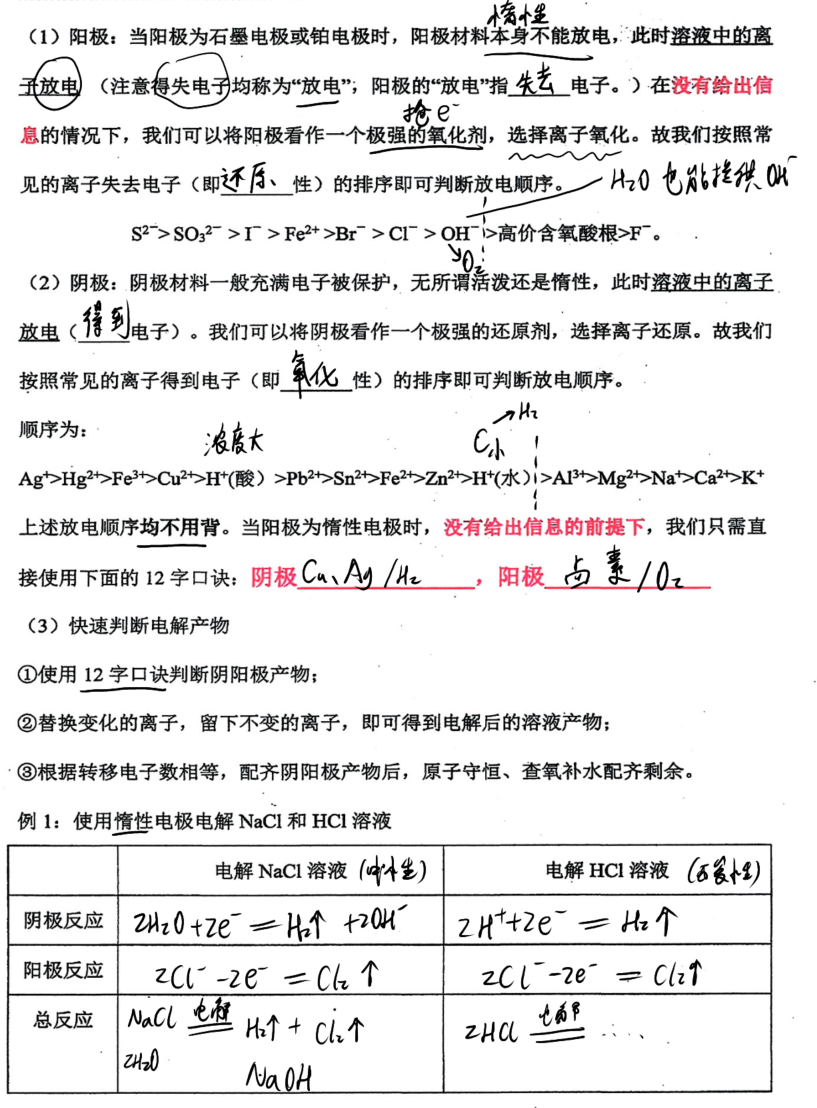 惰性
（1）阳极：当阳极为石墨电极或铂电极时，阳极材料本身不能放电，此时溶液中的离
子放电（注意得失电子均称为“放电”；阳极的“放电”指 失去 电子。）在没有给出信
抢e⁻
息的情况下，我们可以将阳极看作一个极强的氧化剂，选择离子氧化。故我们按照常
见的离子失去电子（即还原、性）的排序即可判断放电顺序。 H₂O 也能提供 OH⁻
S²⁻＞SO₃²⁻＞I⁻＞Fe²⁺＞Br⁻＞Cl⁻＞OH⁻＞高价含氧酸根＞F⁻。
O₂
（2）阴极：阴极材料一般充满电子被保护，无所谓活泼还是惰性，此时溶液中的离子
放电（得到电子）。我们可以将阴极看作一个极强的还原剂，选择离子还原。故我们
按照常见的离子得到电子（即 氧化 性）的排序即可判断放电顺序。
→H₂
顺序为： 浓度大 C小
Ag⁺>Hg²⁺>Fe³⁺>Cu²⁺>H⁺(酸）>Pb²⁺>Sn²⁺>Fe²⁺>Zn²⁺>H⁺(水）>Al³⁺>Mg²⁺>Na⁺>Ca²⁺>K⁺
上述放电顺序均不用背。当阳极为惰性电极时，没有给出信息的前提下，我们只需直
接使用下面的 12 字口诀：阴极 Cu、Ag/H₂ ，阳极 卤素/O₂
（3）快速判断电解产物
①使用 12 字口诀判断阴阳极产物；
②替换变化的离子，留下不变的离子，即可得到电解后的溶液产物；
③根据转移电子数相等，配齐阴阳极产物后，原子守恒、查氧补水配齐剩余。
例 1：使用惰性电极电解 NaCl 和 HCl 溶液
电解 NaCl 溶液 (中性) 电解 HCl 溶液 (酸性)
阴极反应 2H₂O+2e⁻=H₂↑+2OH⁻ 2H⁺+2e⁻=H₂↑
阳极反应 2Cl⁻-2e⁻=Cl₂↑ 2Cl⁻-2e⁻=Cl₂↑
总反应 NaCl 电解 H₂↑+Cl₂↑ 2HCl 电解 ....
2H₂O NaOH